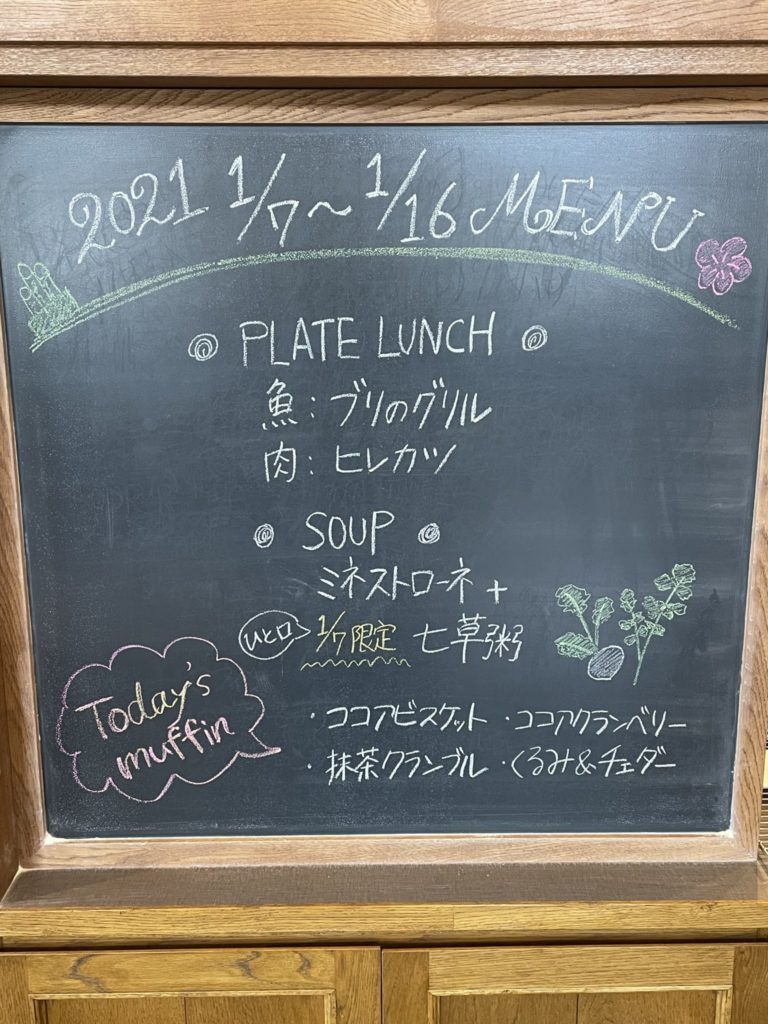 2021 1/7～1/16 MENU
PLATE LUNCH
魚：ブリのグリル
肉：ヒレカツ
SOUP
ミネストローネ +
ひと口 1/7限定 七草粥
Today's
muffin
・ココアビスケット ・ココアクランベリー
・抹茶クランブル ・くるみ&チェダー